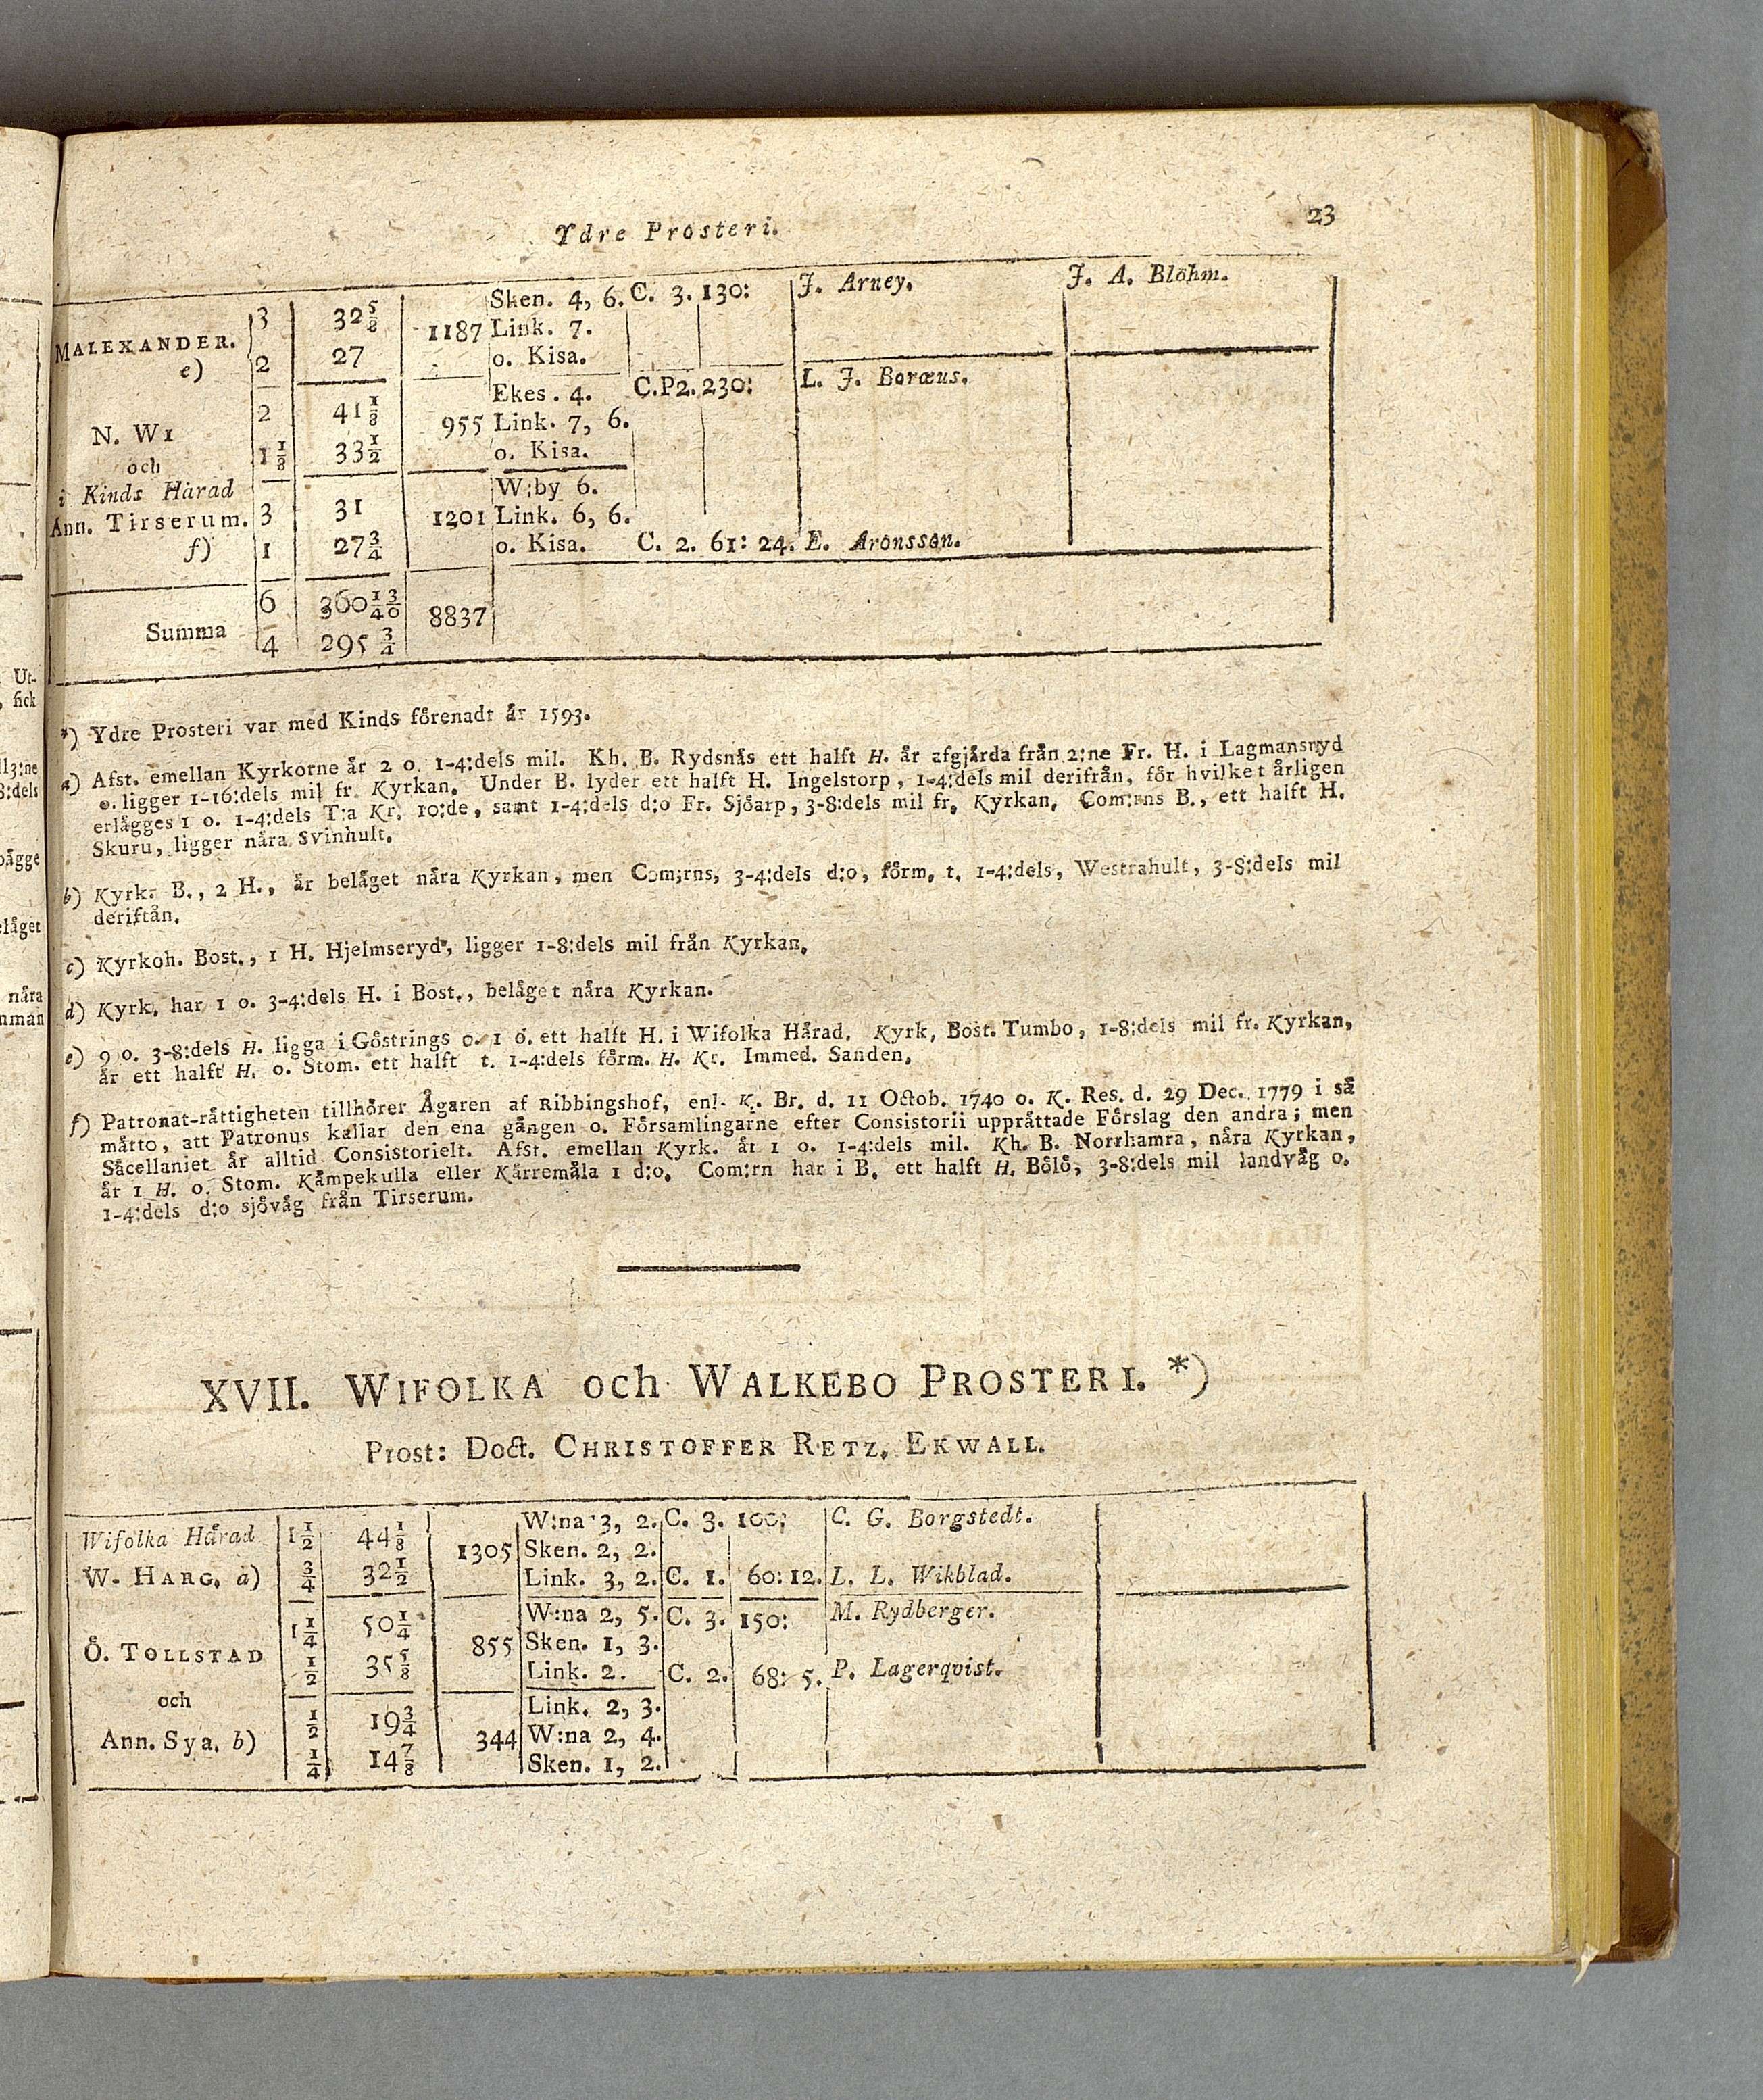 Ydre Prosteri. 23
MALEXANDER. e) 3 32 5/8 1187 Sken. 4, 6. C. 3. 130: J. Arney. J. A. Blöhm.
2 27 Link. 7.
o. Kisa.
N. WI 2 41 1/8 955 Ekes. 4. C.P2. 230: L. J. Boræus.
och 1 1/8 33 1/2 Link. 7, 6.
o. Kisa.
i Kinds Härad
Ann. Tirserum. f) 3 31 1201 W:by 6.
1 27 3/4 Link. 6, 6.
o. Kisa. C. 2. 61: 24. E. Aronsson.
Summa 6 360 1/4 3/0 8837
4 295 3/4
*) Ydre Prosteri var med Kinds förenadt år 1593.
a) Afst. emellan Kyrkorne är 2 o. 1-4:dels mil. Kh. B. Rydsnäs ett halft H. är afgjärda från 2:ne Fr. H. i Lagmansryd
o. ligger 1-16:dels mil fr. Kyrkan. Under B. lyder ett halft H. Ingelstorp, 1-4:dels mil derifrån, för hvilket årligen
erlägges 1 o. 1-4:dels T:a Kr. 10:de, samt 1-4:dels d:o Fr. Sjöarp, 3-8:dels mil fr. Kyrkan. Com:rns B., ett halft H.
Skuru, ligger nära Svinhult.
b) Kyrk. B., 2 H., är beläget nära Kyrkan, men Com;rns, 3-4:dels d:o, förm. t. 1-4:dels, Westrahult, 3-8:dels mil
deriftån.
c) Kyrkoh. Bost., 1 H. Hjelmseryd, ligger 1-8:dels mil från Kyrkan.
d) Kyrk. har 1 o. 3-4:dels H. i Bost., beläget nära Kyrkan.
e) 9 o. 3-8:dels H. ligga i Göstrings o. 1 o. ett halft H. i Wifolka Härad. Kyrk. Bost. Tumbo, 1-8:dels mil fr. Kyrkan,
är ett halft H. o. Stom. ett halft t. 1-4:dels förm. H. Kr. Immed. Sanden.
f) Patronat-rättigheten tillhörer Ägaren af Ribbingshof, enl. K. Br. d. 11 Octob. 1740 o. K. Res. d. 29 Dec. 1779 i så
måtto, att Patronus kallar den ena gången o. Församlingarne efter Consistorii upprättade Förslag den andra; men
Sacellaniet är alltid Consistorielt. Afst. emellan Kyrk. är 1 o. 1-4:dels mil. Kh. B. Norrhamra, nära Kyrkan,
är 1 H. o. Stom. Kämpekulla eller Kärremåla 1 d:o. Com:rn har i B. ett halft H. Bölö, 3-8:dels mil landväg o.
1-4:dels d:o sjöväg från Tirserum.
XVII. WIFOLKA och WALKEBO PROSTERI. *)
Prost: Doct. CHRISTOFFER RETZ. EKWALL.
Wifolka Härad 1 1/2 44 1/8 1305 W:na 3, 2. C. 3. 100: C. G. Borgstedt.
Sken. 2, 2.
W. HARG. a) 3/4 32 1/2 Link. 3, 2. C. 1. 60: 12. L. L. Wikblad.
Ö. TOLLSTAD 1 1/4 50 1/4 855 W:na 2, 5. C. 3. 150: M. Rydberger.
Sken. 1, 3.
1/2 35 5/8 Link. 2. C. 2. 68: 5. P. Lagerqvist.
och
Ann. Sya. b) 1/2 19 3/4 344 Link. 2, 3.
W:na 2, 4.
1/4 14 7/8 Sken. 1, 2.